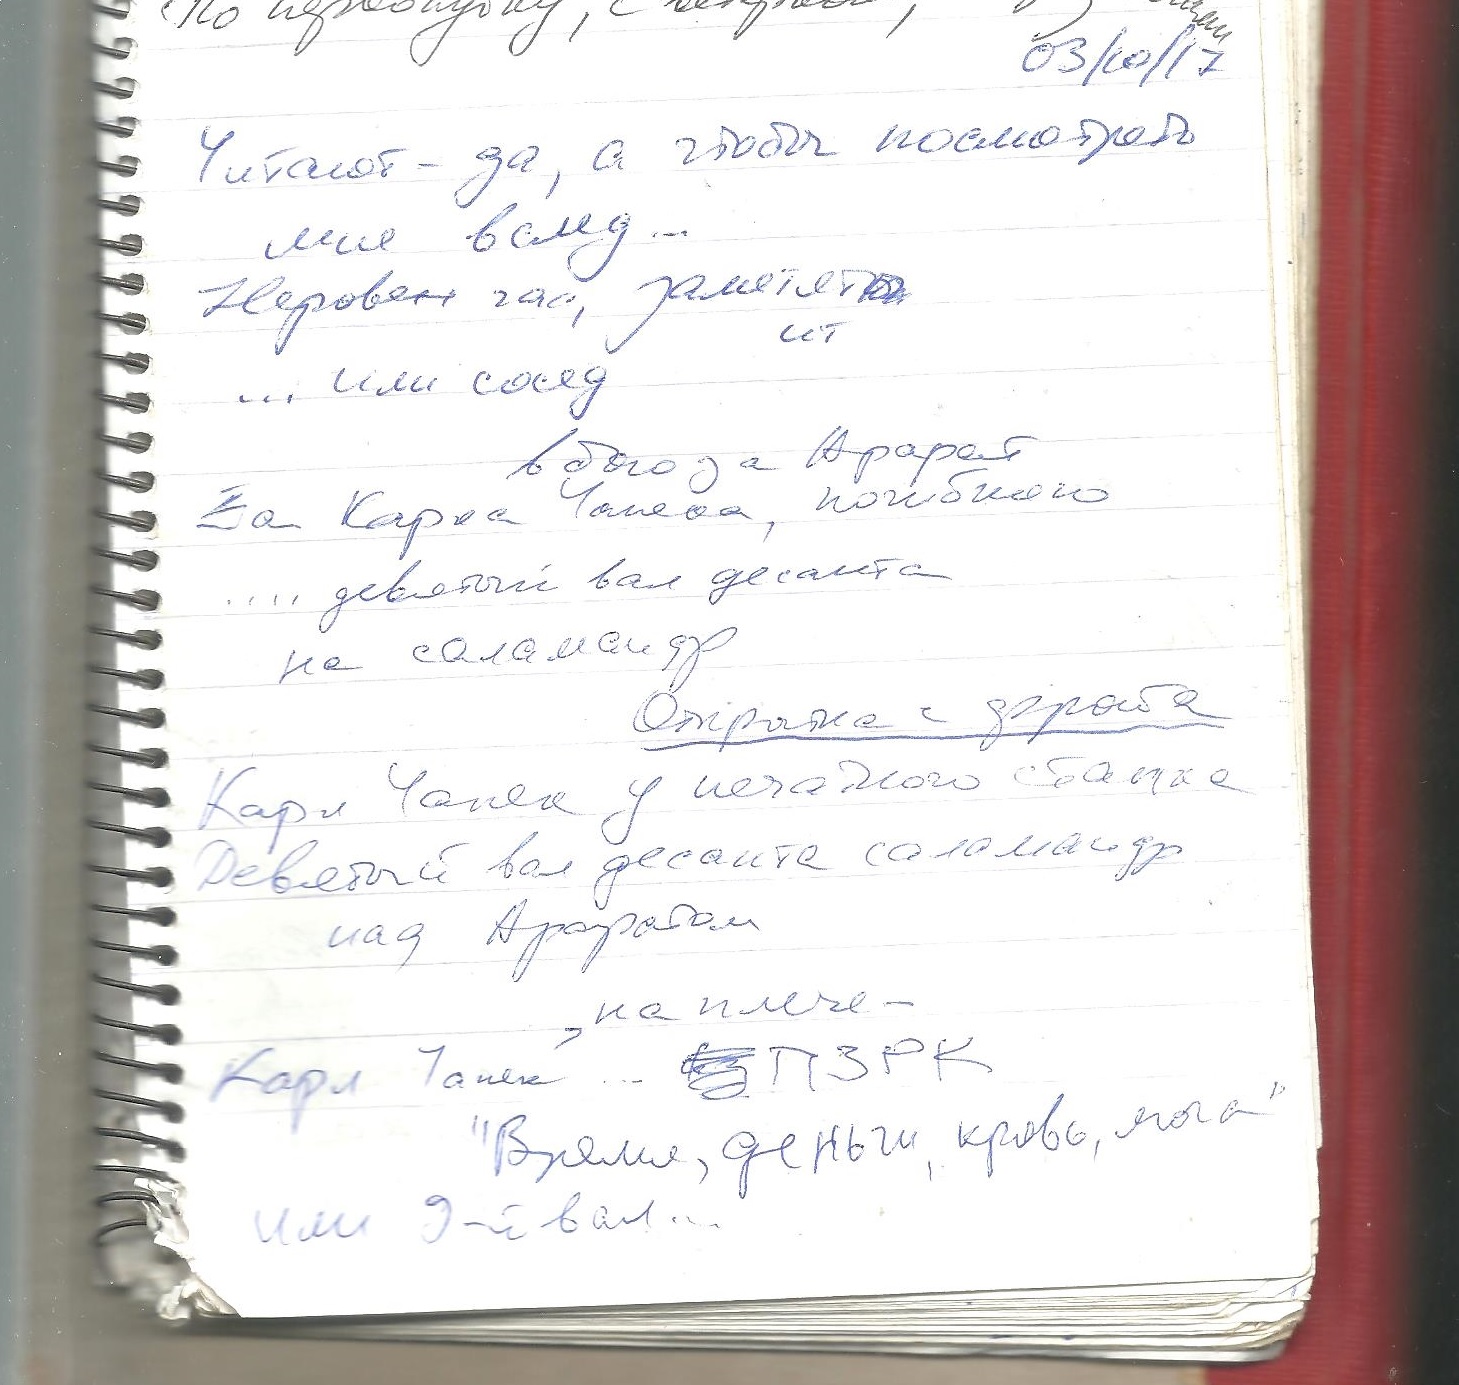 По первопутку, с
03/10/17
Читают – да, а чтобы посмотреть
мне вслед...
Неровен час, заметят
ит
... или сосед
в бою за Арарат
За Карла Чапека, погибшего
.... девятый вал десанта
на саламандр
Открытка с фронта
Карл Чапек у печатного станка
Девятый вал десанта саламандр
над Араратом
, на плече –
Карл Чапек ... ПЗРК
"Время, деньги, кровь, моча"
или 9-й вал...